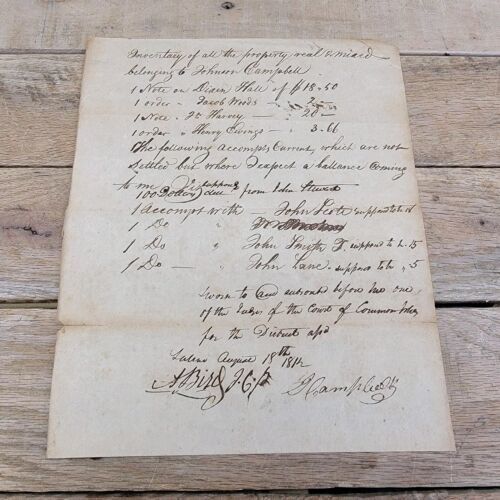 Inventary of all the property real & mixed
belonging to Johnson Campbell
1 Note on Hall of $18-50
1 order " Jacob Woods - 2
1 Note " Jo Harvey - 20-
1 order " Henry - 3.66
The following accompts Current, which are not
settled but where I expect a ballance coming
to me
100 Dollars suppose due from John Stewart
1 Accompt with John suppd to be
1 Do "
1 Do " John suppd to be 15
1 Do - " John Lane suppd to be 5
sworn to and subscribed before me one
of the Judges of the Court of Common
for the District
August 18th 1812
A Bird J.C.P. J Campbell